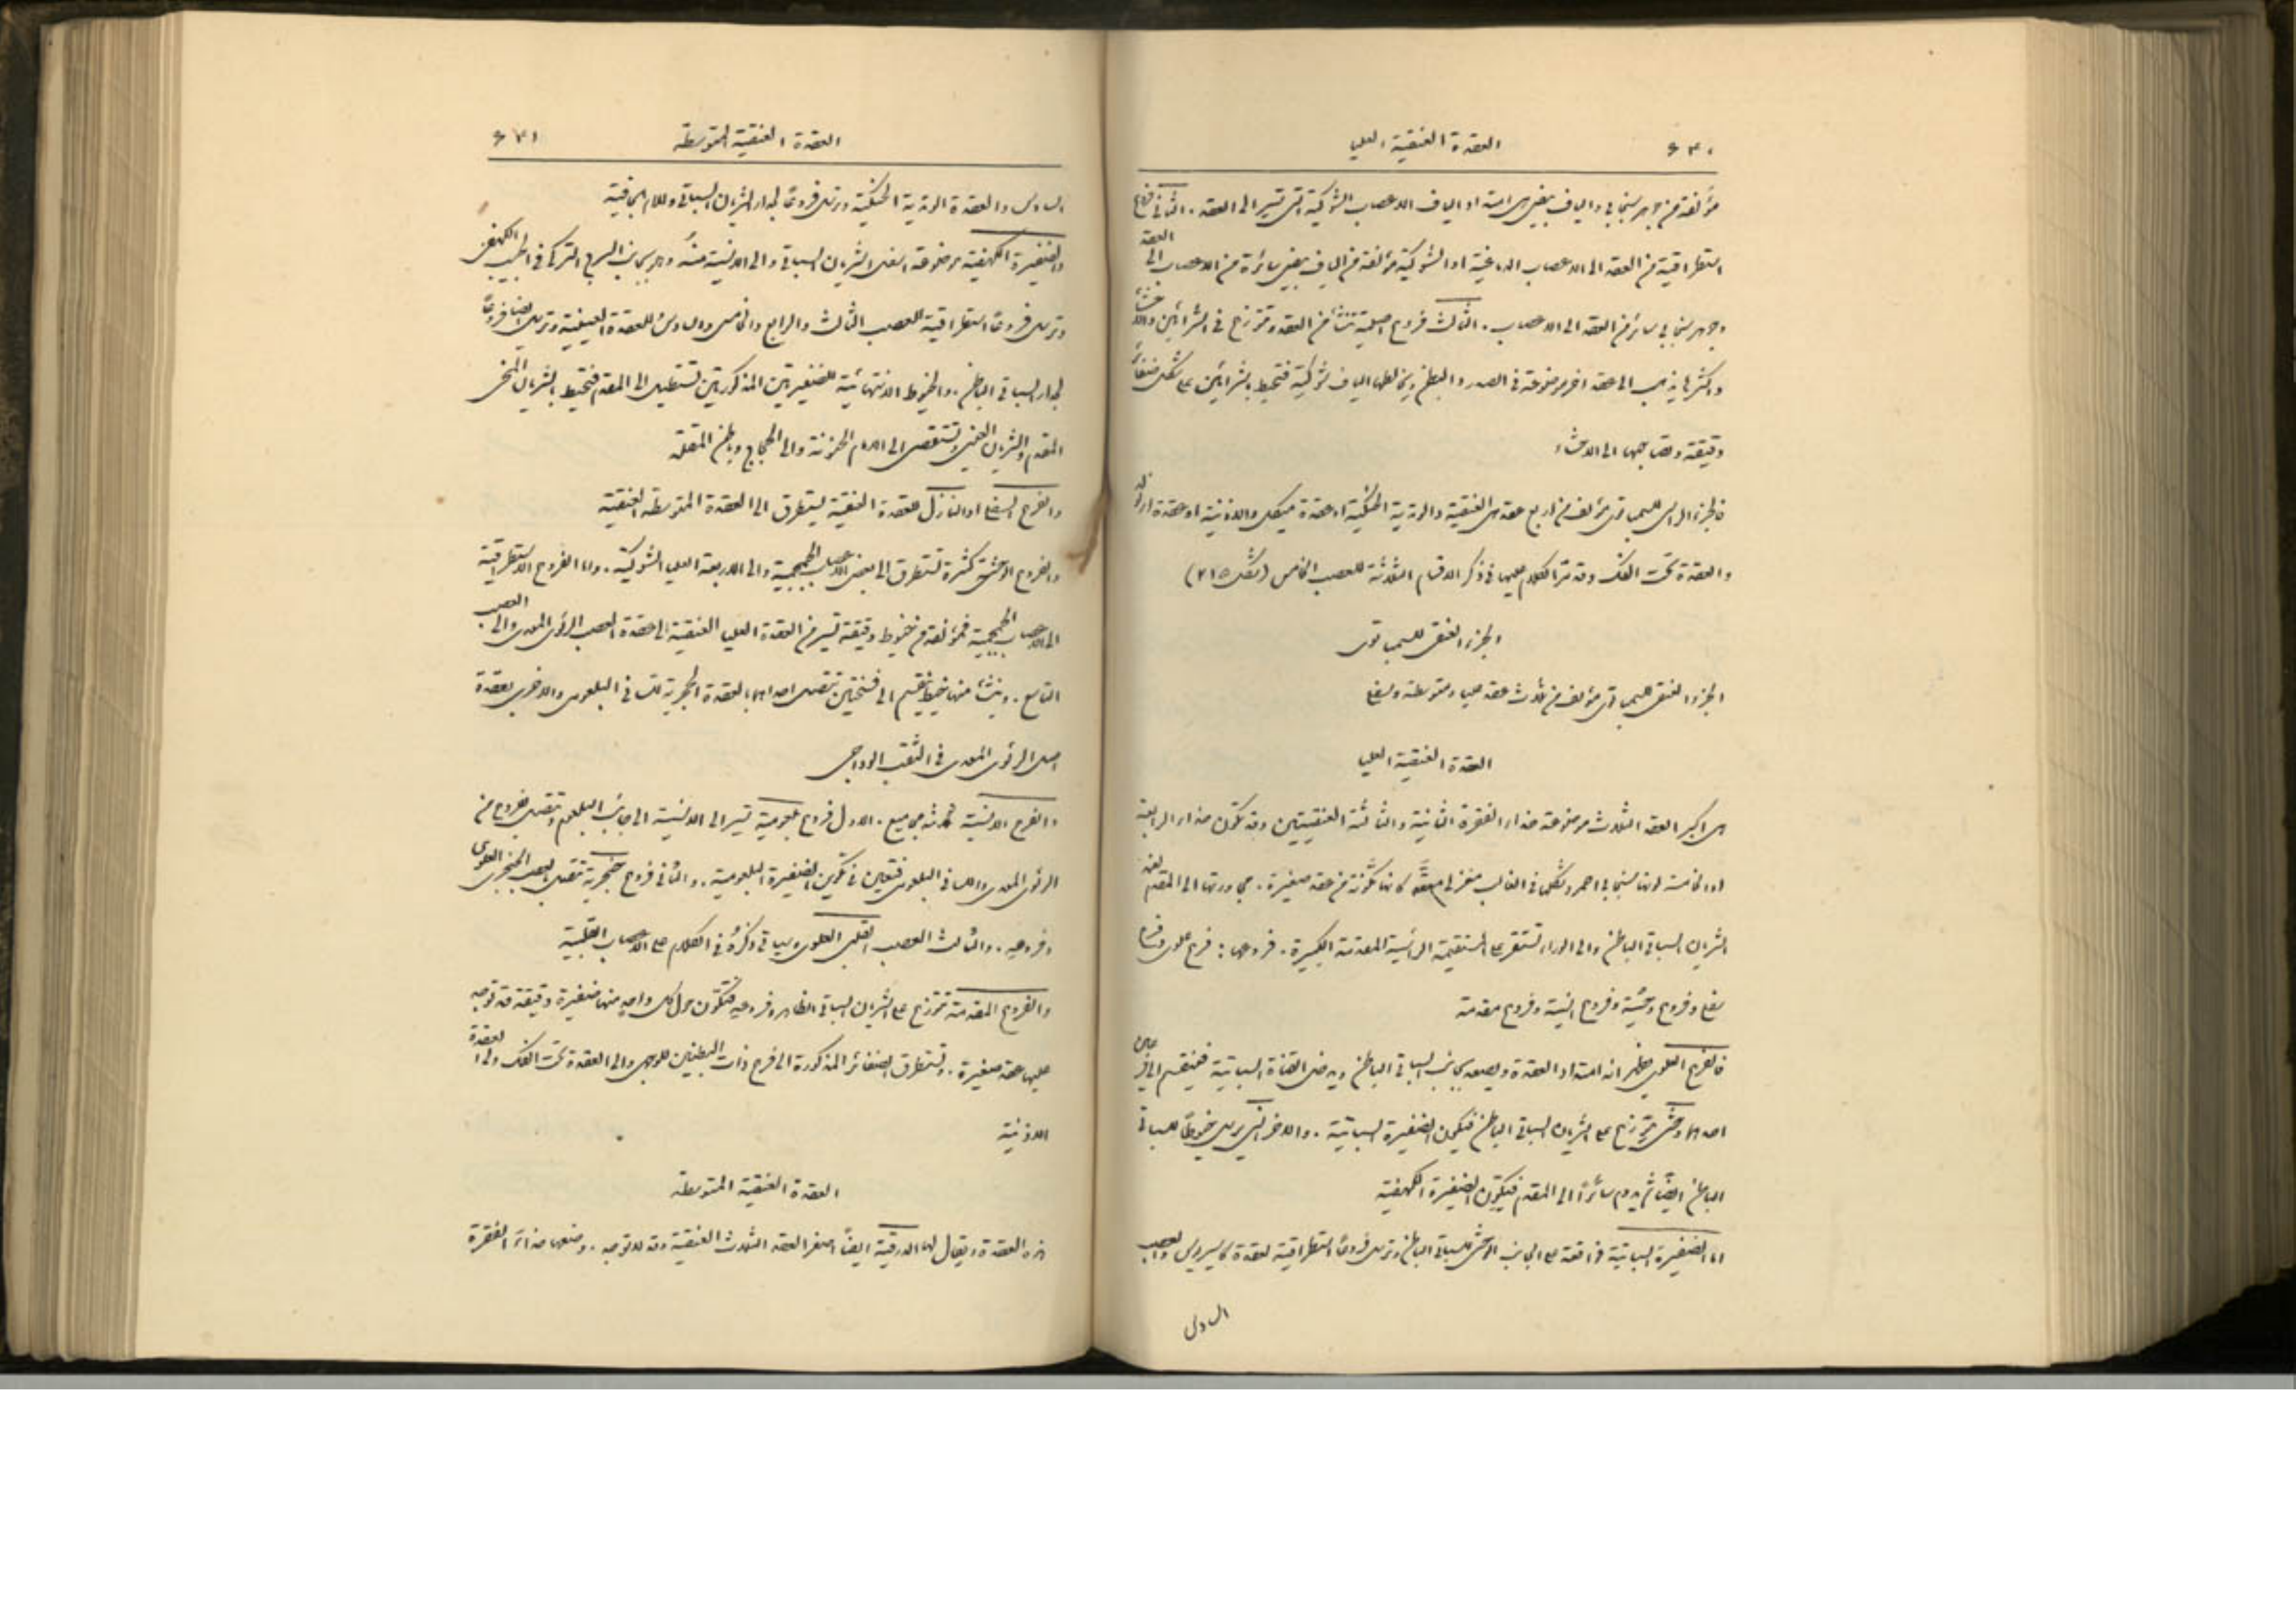 ٦٣٠ العقدة العنقية العليا
مؤلفة من جوهر سنجابي والياف بيض هي امتداد الياف الاعصاب الشوكية التي تسير الى العقد . الثاني فروع
استطراقية من العقد الى الاعصاب الدماغية او الشوكية مؤلفة من الياف بيض سائرة من الاعصاب الى العقد
وجوهر سنجابي سائر من العقد الى الاعصاب . الثالث فروع اصلية تنشأ من العقد وتتوزع في الشرائين والاحشاء
واكثرها يذهب الى عقد اخر موضوعة في الصدر والبطن ويخالطها الياف شوكية فتحيط بالشرائين على شكل ضفائر
دقيقة وتصاحبها الى الاحشاء
فالجزء الراسي للسمباتوي مؤلف من اربع عقد هي العينية والوتدية الحنكية او عقدة ميكل والاذنية او عقدة ارنولد
والعقدة تحت الفك وقد مر الكلام عليها في ذكر الاقسام الثلاثة للعصب الخامس (شكل ٢١٥)
الجزء العنقي للسمباتوي
الجزء العنقي للسمباتوي مؤلف من ثلاث عقد عليا ومتوسطة وسفلى
العقدة العنقية العليا
هي اكبر العقد الثلاث موضوعة حذاء الفقرة الثانية والثالثة العنقيتين وقد تكون حذاء الرابعة
او الخامسة لونها سنجابي احمر وشكلها في الغالب مغزلي كانها مكونة من عقد صغيرة . مجاورتها الى المقدم
الشريان السباتي الباطن والى الوراء تستقر على المستقيمة الراسية المقدمة الكبيرة . فروعها : فرع علوي وفرع
سفلي وفروع وحشية وفروع انسية وفروع مقدمة
فالفرع العلوي يظهر انه امتداد العقدة ويصعد بجانب السباتي الباطن ويدخل القناة السباتية فينقسم الى فرعين
احدهما وحشي يتوزع على الشريان السباتي الباطن فيكون الضفيرة السباتية . والاخر انسي يرسل خيوطا للسباتي
الباطن ايضا ثم يدوم سائرا الى المقدم فيكون الضفيرة الكهفية
اما الضفيرة السباتية فواقعة على الجانب الوحشي للسباتي الباطن وترسل فروعا استطراقية لعقدة كاسيروس والعصب
السادس
العقدة العنقية المتوسطة ٦٣١
السادس والعقدة الوتدية الحنكية وترسل فروعا لجدار الشريان السباتي وللام الجافية
والضفيرة الكهفية موضوعة اسفل الشريان السباتي والى الانسية منه وهو بجانب السرج التركي في الجيب الكهفي
وترسل فروعا استطراقية للعصب الثالث والرابع والخامس والسادس وللعقدة العينية وترسل ايضا فروعا
لجدار السباتي الباطن . والخيوط الانتهائية للضفيرتين المذكورتين تستطيل الى المقدم فتحيط بالشريان المخي
المقدم والشريان العيني وتتقصى الى الام الحنونة والى الحجاج وباطن المقلة
والفرع السفلي او النازل للعقدة العنقية يتطرق الى العقدة المتوسطة العنقية
والفروع الوحشية كثيرة تتطرق الى بعض الاعصاب الجمجمية والى الاربعة العليا الشوكية . واما الفروع الاستطراقية
الى الاعصاب الجمجمية فمؤلفة من خيوط دقيقة تسير من العقدة العليا العنقية الى عقدة العصب الرئوي المعدي والى العصب
التاسع . وينشأ منها خيط ينقسم الى فتختين تتصل احداهما بالعقدة الحجرية للساني البلعومي والاخرى بعقدة
اصل الرئوي المعدي في الثقب الوداجي
والفروع الانسية ثلاثة مجاميع . الاول فروع بلعومية تسير الى الانسية الى جانب البلعوم وتتصل بفروع من
الرئوي المعدي واللساني البلعومي فتعين في تكوين الضفيرة البلعومية . والثاني فروع حنجرية تتصل بالعصب الحنجري العلوي
وفروعه . والثالث العصب القلبي العلوي وسياتي ذكره في الكلام على الاعصاب القلبية
والفروع المقدمة تتوزع على الشريان السباتي الظاهر وفروعه فتتكون حول كل واحد منها ضفيرة دقيقة قد توجد
عليها عقد صغيرة . وتتطرق الضفائر المذكورة الى فرع ذات البطنين للوجهي والى العقدة تحت الفك والى العقدة
الاذنية
العقدة العنقية المتوسطة
هذه العقدة ويقال لها الدرقية ايضا اصغر العقد الثلاث العنقية وقد لا توجد . وضعها حذاء الفقرة